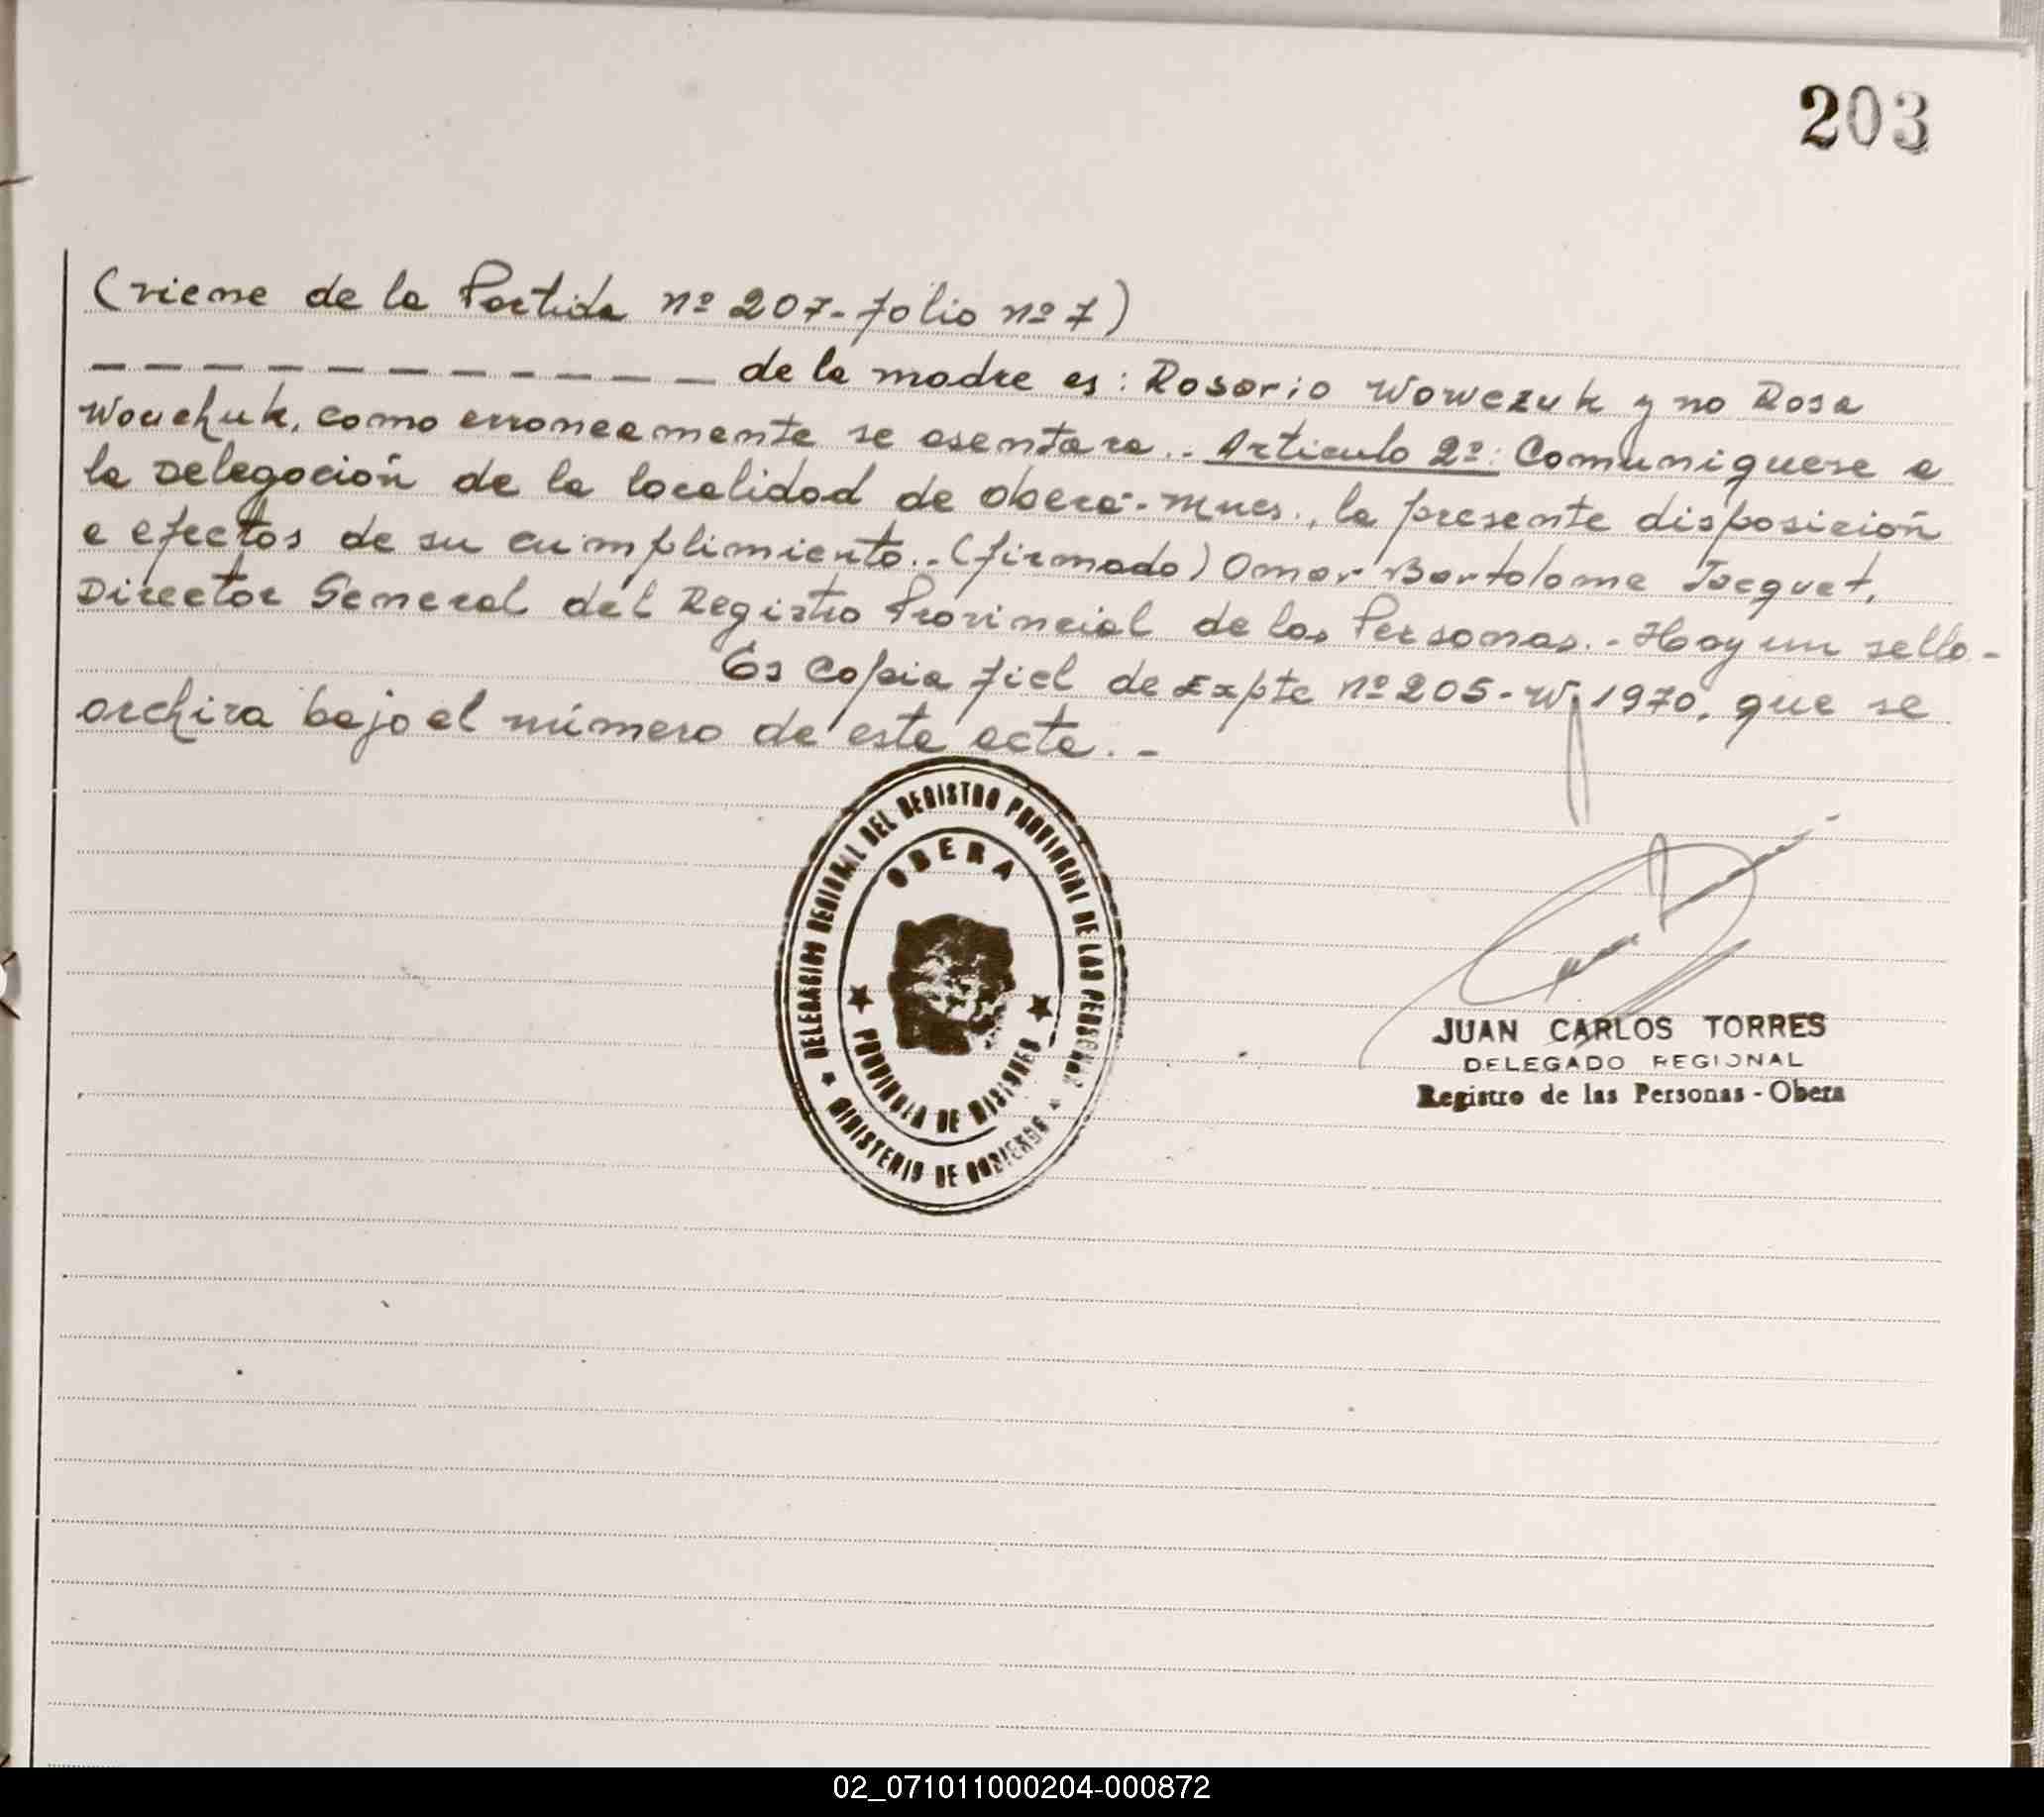 203
(viene de la Partida nº 207-folio nº 7)
— — — — — — — — — — — de la madre es: Rosario Wowczuk y no Rosa
Wouchuk, como erroneamente se asentara.. Articulo 2º: Comuniquese a
la Delegación de la localidad de Oberá-Mnes., la presente disposición
a efectos de su cumplimiento.. (firmado) Omar Bartolome Jacquet,
Director General del Registro Provincial de las Personas.- Hay un sello-
Es copia fiel de Expte nº 205-W, 1970, que se
archiva bajo el número de este acta. -
DELEGACION REGIONAL DEL REGISTRO PROVINCIAL DE LAS PERSONAS
OBERA
PROVINCIA DE MISIONES
MINISTERIO DE GOBIERNO
JUAN CARLOS TORRES
DELEGADO REGIONAL
Registro de las Personas - Obera
02_071011000204-000872